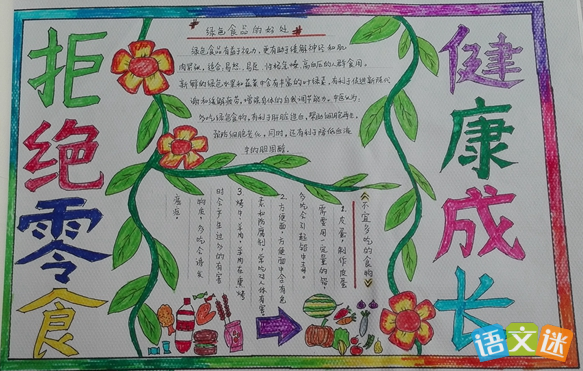 拒绝零食
健康成长
绿色食品的好处
绿色食品有益于视力，更有助于缓解神经和肌
肉紧张，适合易怒、易
高血压的人群食用。
新鲜的绿色水果和蔬菜中含有丰富的叶绿素，有利于促进新陈代
谢和缓解疲劳，增强身体的自我调节能力。
多吃绿色食物，有利于肝脏造血，帮助细胞再生，
预防细胞老化，同时，还有利于降低血液
中的胆固醇。
《不宜多吃的食物》
1、皮蛋，制作皮蛋
需要用一定量的铅，
多吃会引起铅中毒。
2、方便面，方便面中含有色
素和防腐剂，常吃对人体有害。
3、烤牛、羊肉，牛、羊肉在熏烤
时会产生过多的有害
物质，多吃会诱发
癌症。
语文迷